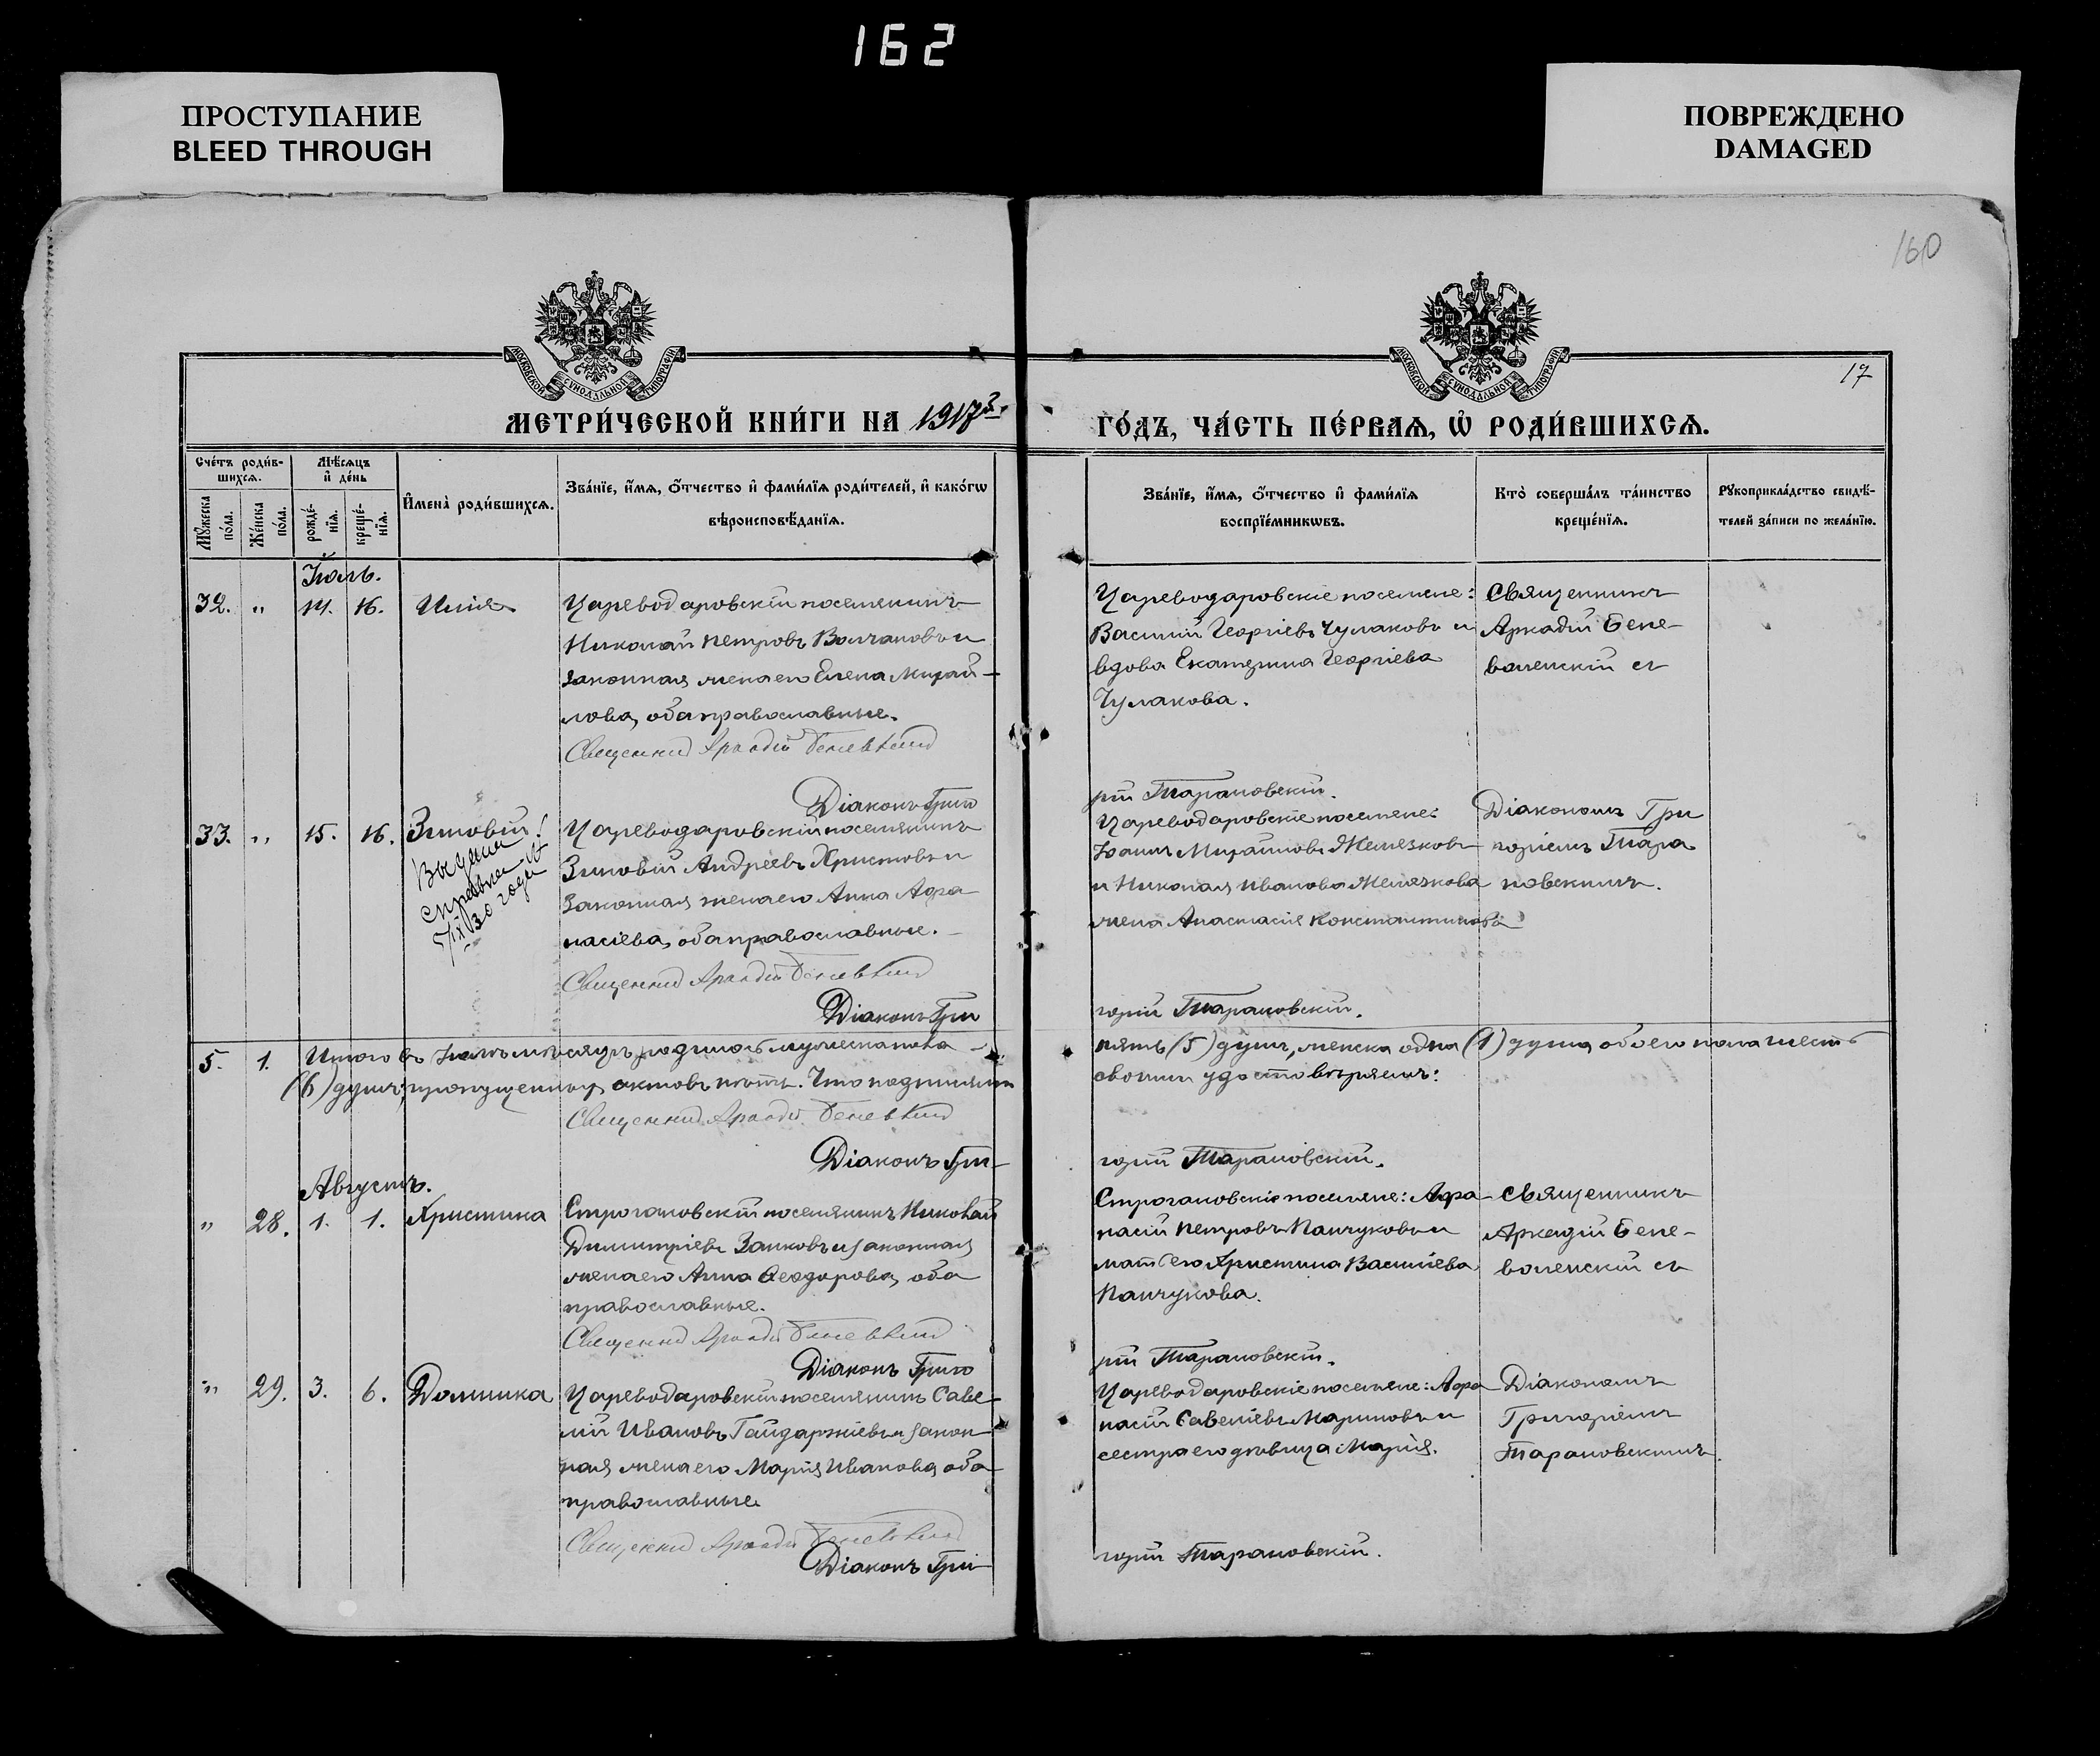 162
ПРОСТУПАНИЕ
BLEED THROUGH
ПОВРЕЖДЕНО
DAMAGED
160
МОСКОВСКОЙ СѴНОДАЛЬНОЙ ТИПОГРАФІИ
МОСКОВСКОЙ СѴНОДАЛЬНОЙ ТИПОГРАФІИ
17
МЕТРИ́ЧЕСКОЙ КНИ́ГИ НА 1917 г.
ГО́ДЪ, ЧА́СТЬ ПЕ́РВАѦ, Ѡ҆ РОДИ́ВШИХСѦ.
Сче́тъ роди́в-
шихсѧ.
Мꙋ́жеска по́ла.
Же́нска по́ла.
Мѣ́сѧцъ
и҆ де́нь
рожде́-
нїѧ.
креще́-
нїѧ.
И҆мена̀ роди́вшихсѧ.
Зва́нїе, и҆́мѧ, ѻ҆́тчество и҆ фами́лїѧ роди́телей, и҆ како́гѡ
вѣроисповѣ́данїѧ.
Зва́нїе, и҆́мѧ, ѻ҆́тчество и҆ фами́лїѧ
воспрїе́мникѡвъ.
Кто̀ соверша́лъ та́инство
креще́нїѧ.
Рꙋкоприкла́дство свидѣ́-
телей за́писи по жела́нїю.
Іюль.
32. " 14. 16. Илія
Цареводаровскій поселянинъ
Николай Петровъ Волчановъ и
законная жена его Елена Михай-
лова, оба православные.
Священник Аркадій Беневоленский
Діаконъ Григо
Цареводаровскіе поселяне:
Василій Георгіевъ Чулаковъ и
вдова Екатерина Георгіева
Чулакова.
рій Тарановскій.
Священникъ
Аркадій Бене-
воленскій съ
33. " 15. 16. Зиновій!
Выдана
справка
5/IX 30 года
Цареводаровскій поселянинъ
Зиновій Андреевъ Христовъ и
законная жена его Анна Афа
насіева, оба православные.
Священник Аркадій Беневоленский
Діаконъ Гри
Цареводаровскіе поселяне:
Іоаннъ Михайловъ Желязковъ
и Николая Иванова Желязкова
жена Анастасія Константинова
горій Тарановскій.
Діакономъ Гри
горіемъ Тара
новскимъ.
5. 1. Итого въ Іюлѣ мѣсяцѣ родилось мужеска пола
пять (5) душъ, женска одна (1) душа обоего пола шесть
(6) душъ; пропущенныхъ актовъ нѣтъ. Что подписями
своими удостовѣряемъ:
Священник Аркадій Беневоленский
Діаконъ Гри-
горій Тарановскій.
Августъ.
" 28. 1. 1. Христина
Строгановскій поселянинъ Николай
Димитріевъ Занковъ и законная
жена его Анна Ѳеодорова, оба
православные.
Священник Аркадій Беневоленский
Діаконъ Григо
Строгановскіе поселяне: Афа
насій Петровъ Панчуковъ и
мать его Христина Васильева
Панчукова.
рій Тарановскій.
Священникъ
Аркадій Бене-
воленскій съ
" 29. 3. 6. Домника
Цареводаровскій поселянинъ Саве-
лій Ивановъ Гайдаржіевъ и закон
ная жена его Марія Иванова, оба
православные
Священник Аркадій Беневоленский
Діаконъ Гри-
Цареводаровскіе поселяне: Афа
насій Савеліевъ Мариновъ и
сестра его дѣвица Марія.
горій Тарановскій.
Діакономъ
Григоріемъ
Тарановскимъ.